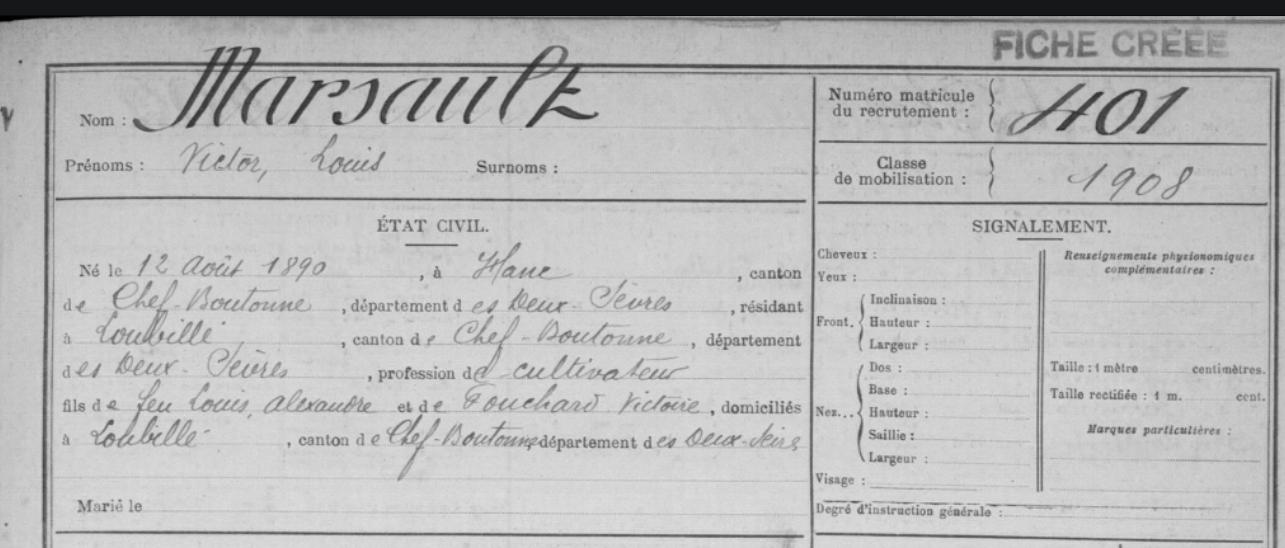 FICHE CRÉÉE
Nom : Marsault
Numéro matricule
du recrutement : 401
Prénoms : Victor, Louis Surnoms :
Classe
de mobilisation : 1908
ÉTAT CIVIL.
Né le 12 Août 1890, à Hanc, canton
de Chef-Boutonne, département des Deux-Sèvres, résidant
à Loubillé, canton de Chef-Boutonne, département
des Deux-Sèvres, profession de cultivateur
fils de feu Louis, Alexandre et de Fouchard Victoire, domiciliés
à Loubillé, canton de Chef-Boutonne, département des Deux-Sèvres
Marié le
SIGNALEMENT.
Cheveux :
Yeux :
Front. Inclinaison :
Hauteur :
Largeur :
Nez... Dos :
Base :
Hauteur :
Saillie :
Largeur :
Visage :
Degré d'instruction générale :
Renseignements physionomiques
complémentaires :
Taille : 1 mètre centimètres.
Taille rectifiée : 1 m. cent.
Marques particulières :